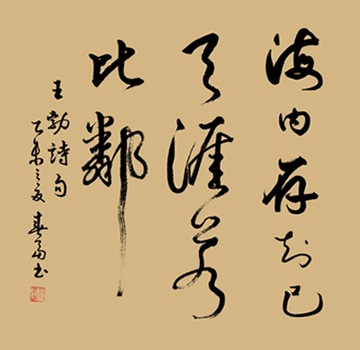 海内存知己
天涯若
比鄰
王勃詩句
乙未之夏春